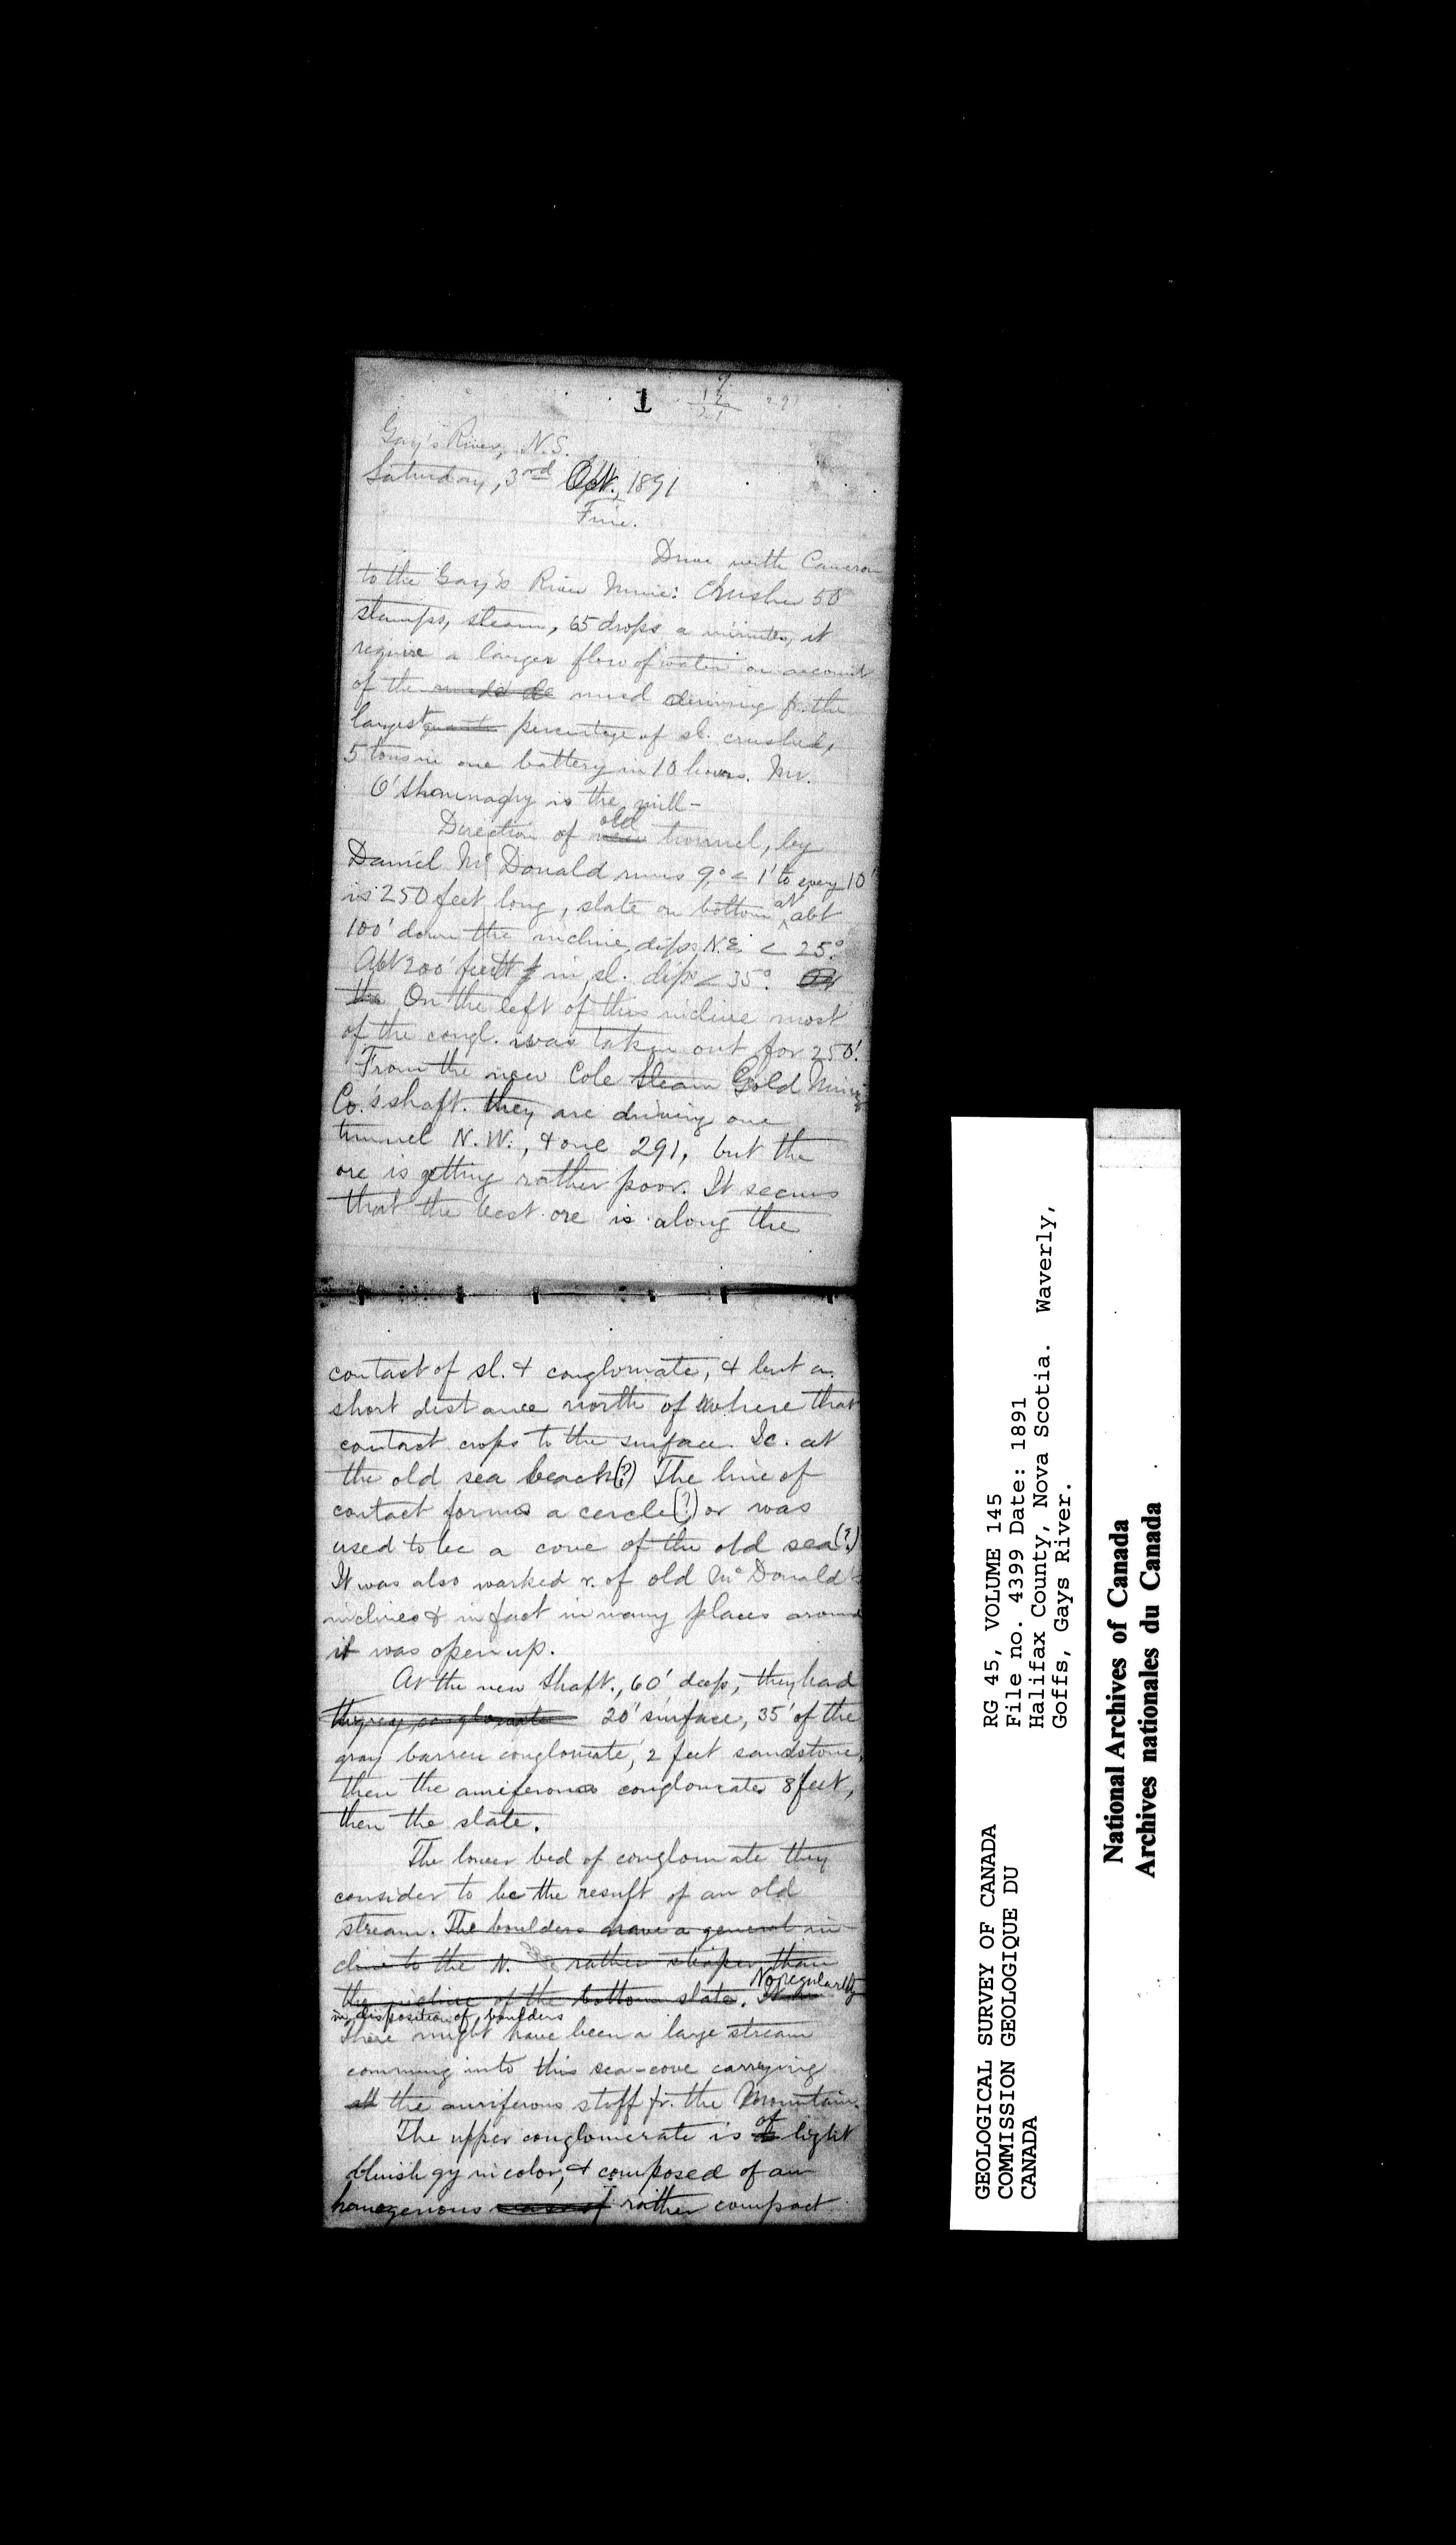 1
9
12
21
291
Gay's River, N.S.
Saturday, 3rd Oct., 1891
Fine.
Drive with Cameron
to the Gay's River Mine: Crusher 50
stamps, steam, 65 drops a minutes, it
require a larger flow of water on account
of the mud deriving fr. the
largest percentage of sl. crushed,
5 tons in one battery in 10 hours. Mr.
O'Shaunaghy is the mill-
Direction of new old tunnel, by
Daniel McDonald runs 9° < 1' to every 10'
is 250 feet long, slate on bottom at abt
100' down the incline, dips N.E. < 25°.
Abt 200' feet in, sl. dips < 35°. On
the On the left of this incline most
of the congl. was taken out for 250'.
From the new Cole Steam Gold Mining
Co.'s shaft. they are driving one
tunnel N.W., & one 291, but the
ore is getting rather poor. It seems
that the best ore is along the
contact of sl. & conglomate, & but a
short distance north of where that
contact crops to the surface. Ie. at
the old sea beach(?) The line of
contact forms a cercle(?) or was
used to be a cove of the old sea(?)
It was also worked r. of old McDonald's
inclines & in fact in many places around
it was open up.
At the new shaft., 60' deep, they had
the grey conglomate 20' surface, 35' of the
gray barren conglomate, 2 feet sandstone,
then the auriferous conglomcate 8 feet,
then the slate.
The lower bed of conglomate they
consider to be the result of an old
stream. The boulders have a general in-
cline to the N. rather steaper than
the incline of the bottom slate. It No regularity
in disposition of boulders
There might have been a large stream
comming into this sea-cove carrying
all the auriferous stoff fr. the Mountain.
The upper conglomerate is of light
bluish gy in color, & composed of an
homogenous rather compact
GEOLOGICAL SURVEY OF CANADA
COMMISSION GEOLOGIQUE DU
CANADA
RG 45, VOLUME 145
File no. 4399 Date: 1891
Halifax County, Nova Scotia. Waverly,
Goffs, Gays River.
National Archives of Canada
Archives nationales du Canada